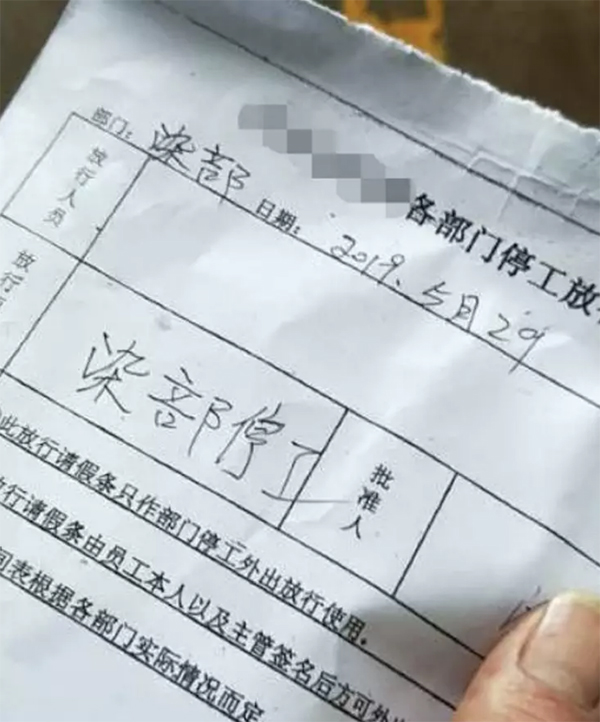 各部门停工放
部门: 染部 日期: 2019.5月29
放行人员
放行
染部停工 批准人
此放行请假条只作部门停工外出放行使用.
行请假条由员工本人以及主管签名后方可外
间表根据各部门实际情况而定